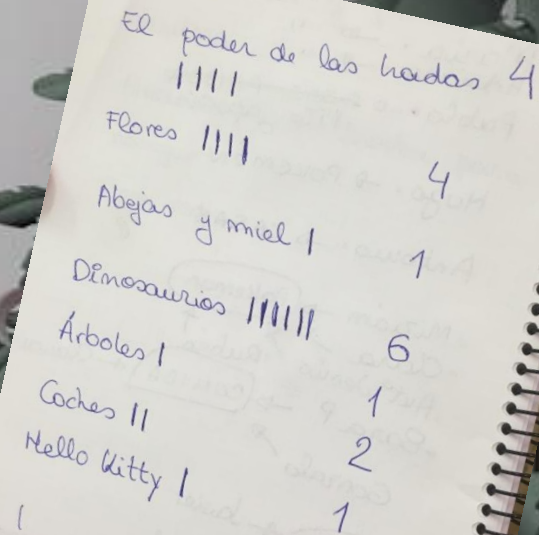 El poder de las hadas 4
||||
Flores |||| 4
Abejas y miel | 1
Dinosaurios |||||| 6
Árboles | 1
Coches || 2
Hello Kitty | 1
|